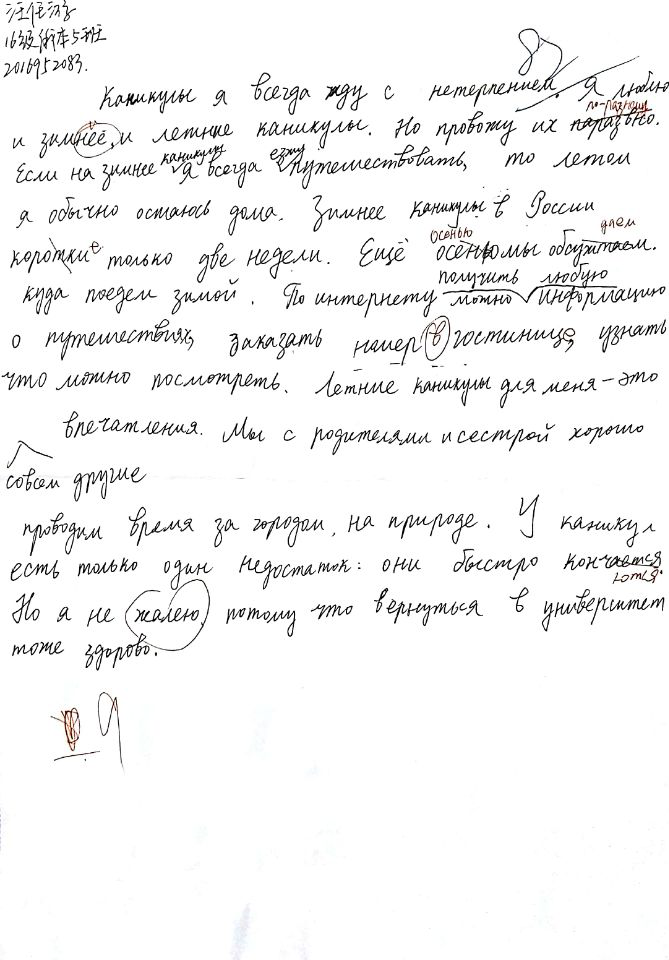 16级 本5班
2016952083.
83
Каникулы я всегда жду с нетерпением. Я люблю
по-разному
и зимнеё, и летние каникулы. Но провожу их паразвно.
каникулы езжу
Если на зимнее я всегда путешествовать, то летом
я обычно остаюсь дома. Зимнее каникулы в России
осенью даем
короткие только две недели. Ещё осенью мы обсуждаем.
получить любую
куда поедем зимой. По интернету можно информацию
о путешествиях, заказать номер в гостинице, узнать
что можно посмотреть. Летние каникулы для меня – это
впечатления. Мы с родителями и сестрой хорошо
совсем другие
проводим время за городом, на природе. У каникул
есть только один недостаток: они быстро кончается
ются.
Но я не жалею, потому что вернуться в университет
тоже здорово.
9